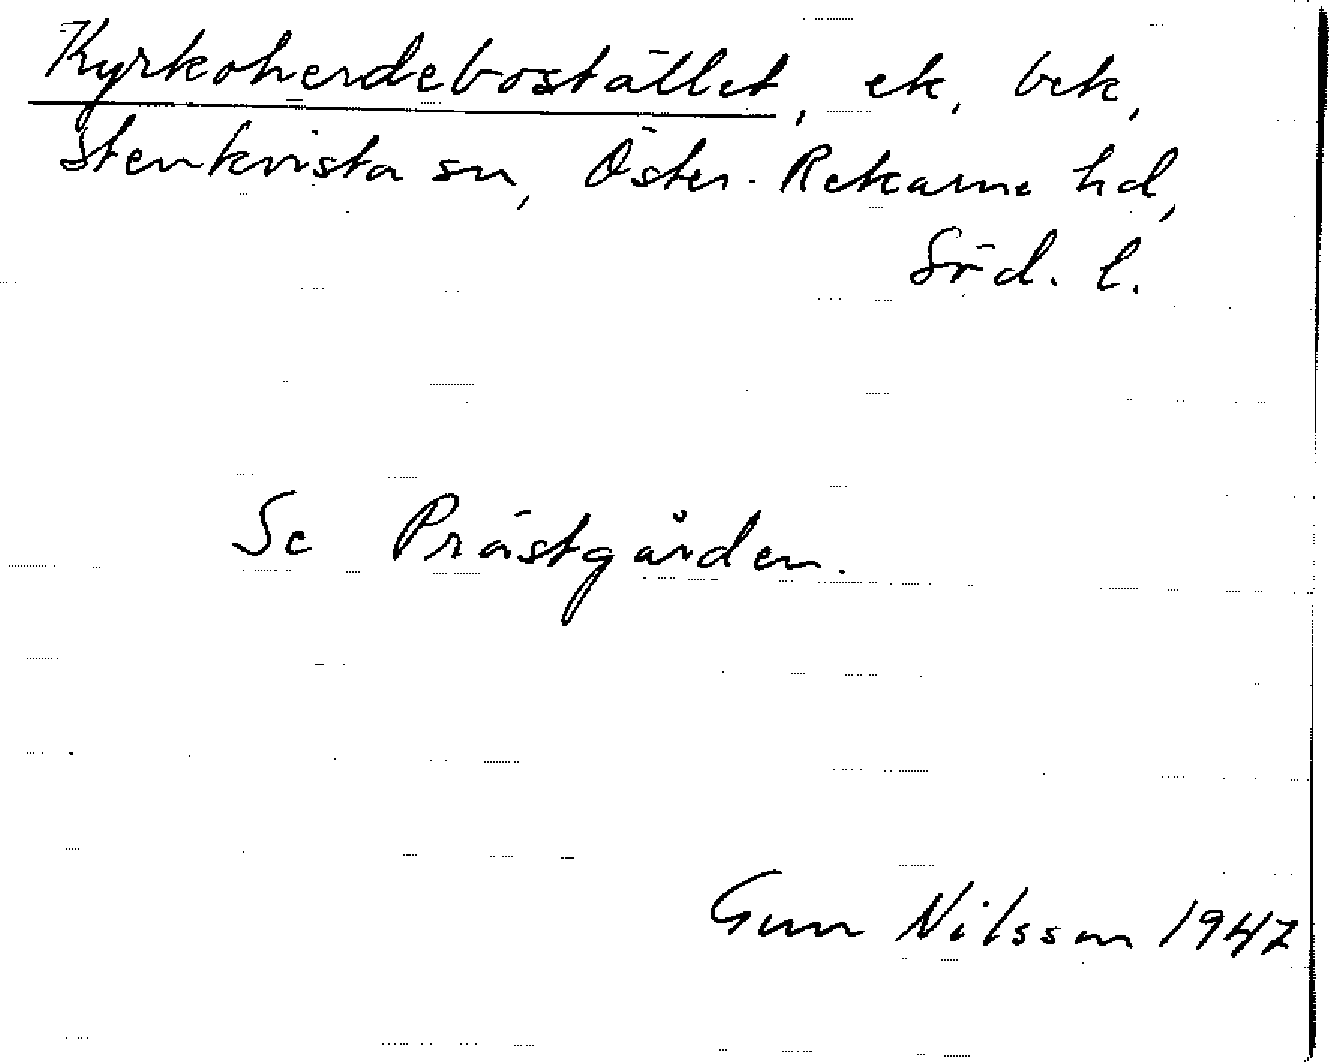 Kyrkoherdebostället, ek. bek,
Stenkvista sn, Öster-Rekarne hd,
Söd. l.
Se Prästgården.
Gun Nilsson 1947